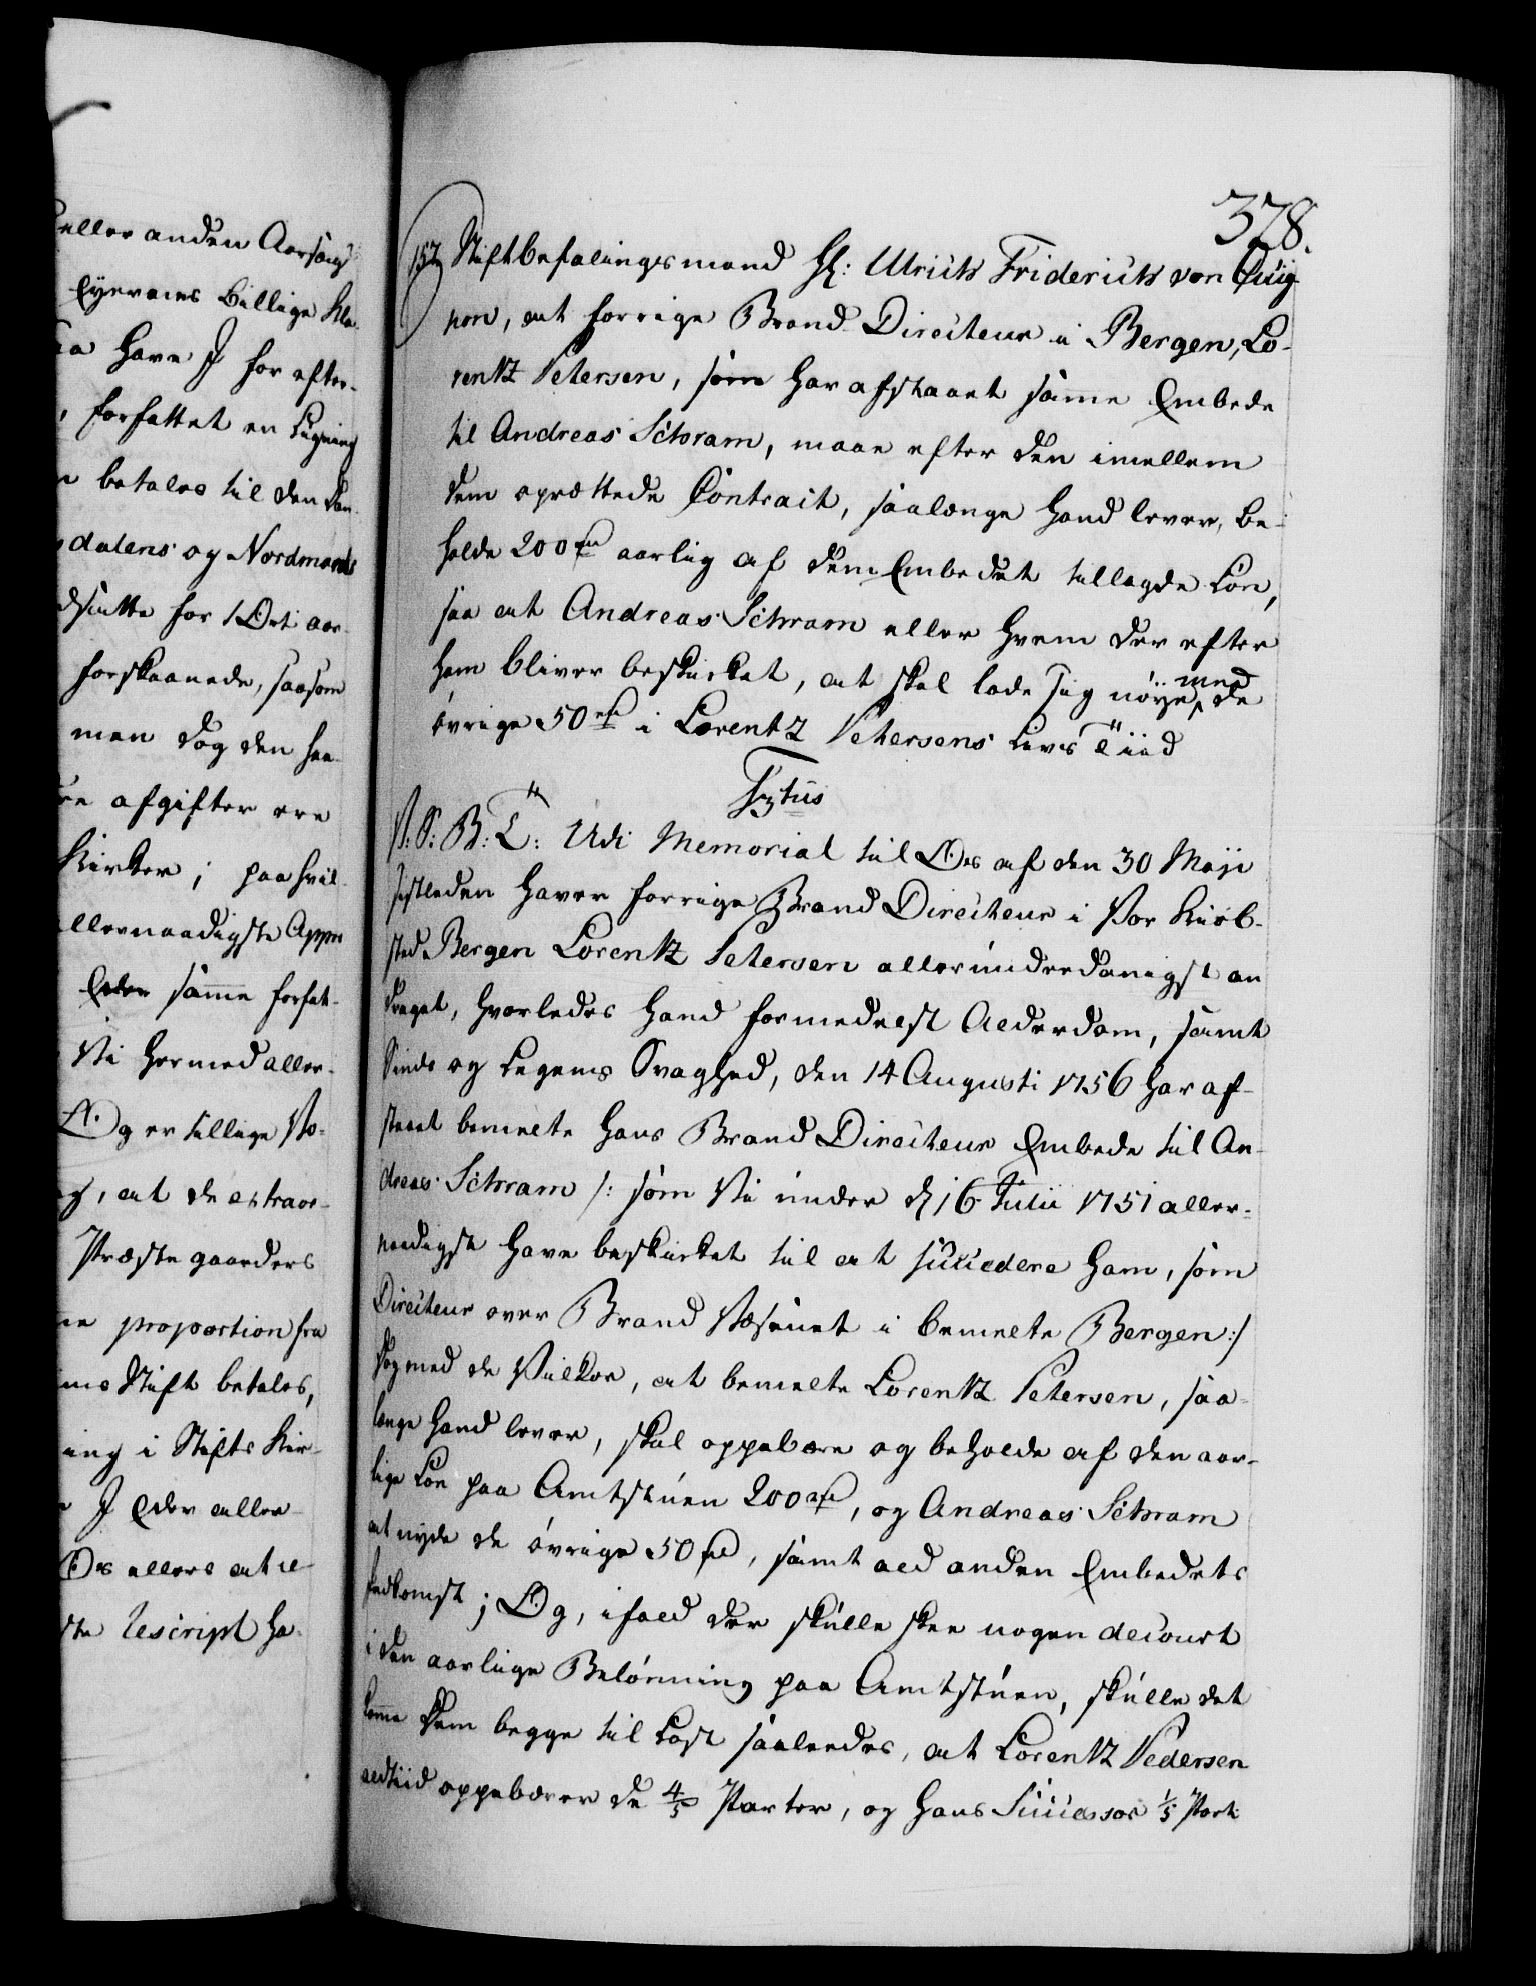 eller anden Aarsag
Eyernes billige Kla-
saa have I for efter-
, forfattet en Ligning
betales til den
dalens og Nordmørds
for 1 Ort aar-
forskaanede, saasom
men dog den
afgifter ere
Kirker; paa hvil-
allernaadigste App
samme forfat-
Vi hermed aller-
Og er tillige Vo-
, at de extraor-
Præstegaarders
proportion fra
Stift betales,
ing i Stifts Kir-
I Eder aller-
Os allers
Rescript ha-
378.
157 Stiftbefalingsmand Hr: Ulrich Friderich von Cuig-
non, at forrige Brand Directeur i Bergen, Lo-
rentz Petersen, som har afstaaet samme Embede
til Andreas Schram, maae efter den imellem
dem oprættede Contract, saalænge hand lever, be-
holde 200 rd aarlig af dem Embedet tillagde Løn,
saa at Andreas Schram eller hvem der efter
ham bliver beskikket, at skal lade sig nøye med de
øvrige 50 rd i Lorentz Petersens Livs Tiid
F: 5tus
V: S: B: T: Udi Memorial til Os af den 30 Maji
sistleden haver forrige Brand Directeur i Vor Kiøb-
sted Bergen Lorentz Petersen allerunderdanigst an
draget, hvorledes hand formedelst Alderdom, samt
Sinds og Legems Svaghed, den 14 Augusti 1756 har af-
staaet bemelte hans Brand Directeur Embede til An-
dreas Schram /: som Vi under d 16 Julii 1751 aller-
naadigst have beskikket til at succedere ham, som
Directeur over Brand Væsenet i bemelte Bergen :/
dog med de Vilkor, at bemelte Lorentz Petersen, saa-
længe hand lever, skal oppebære og beholde af den aar-
lige Løn paa Amtstuen 200 rd, og Andreas Schram
at nyde de øvrige 50 rd, samt ald anden Embedets
Indkomst; Og, ifald der skulle skee nogen decourt
i den aarlige Belønning paa Amtstuen, skulle det
komme dem begge til Last saaledes, at Lorentz Pedersen
altiid oppebærer de 4/5 Parter, og hans Successor 1/5 Part